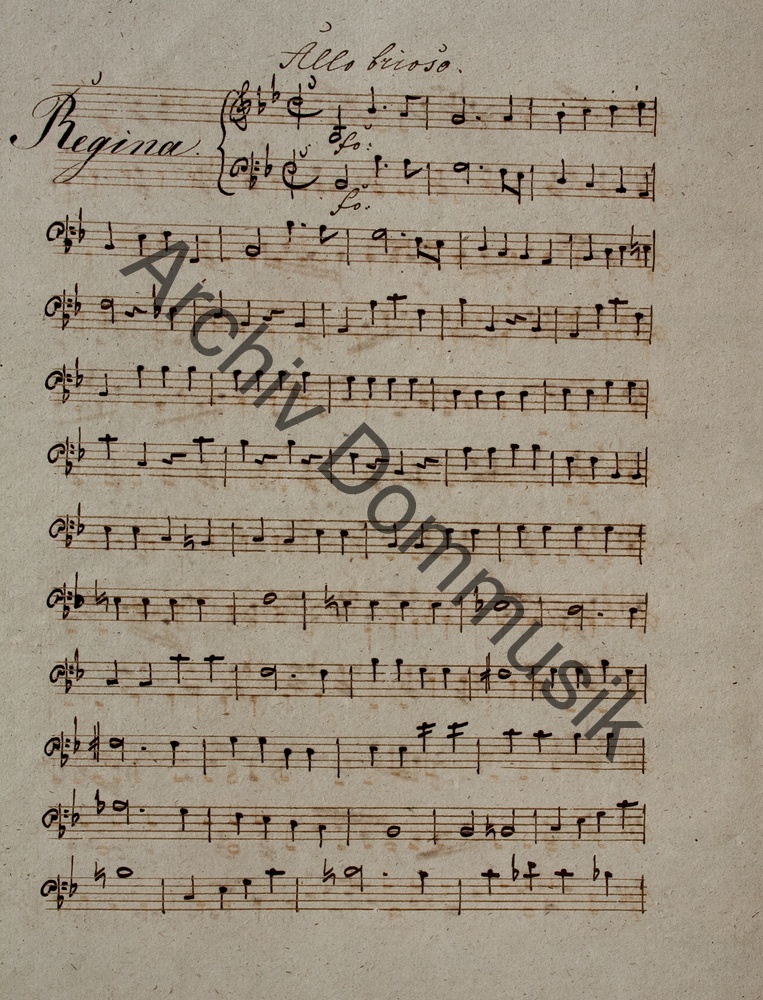 Allo brioso.
Regina.
fo:
fo.
Archiv Dommusik